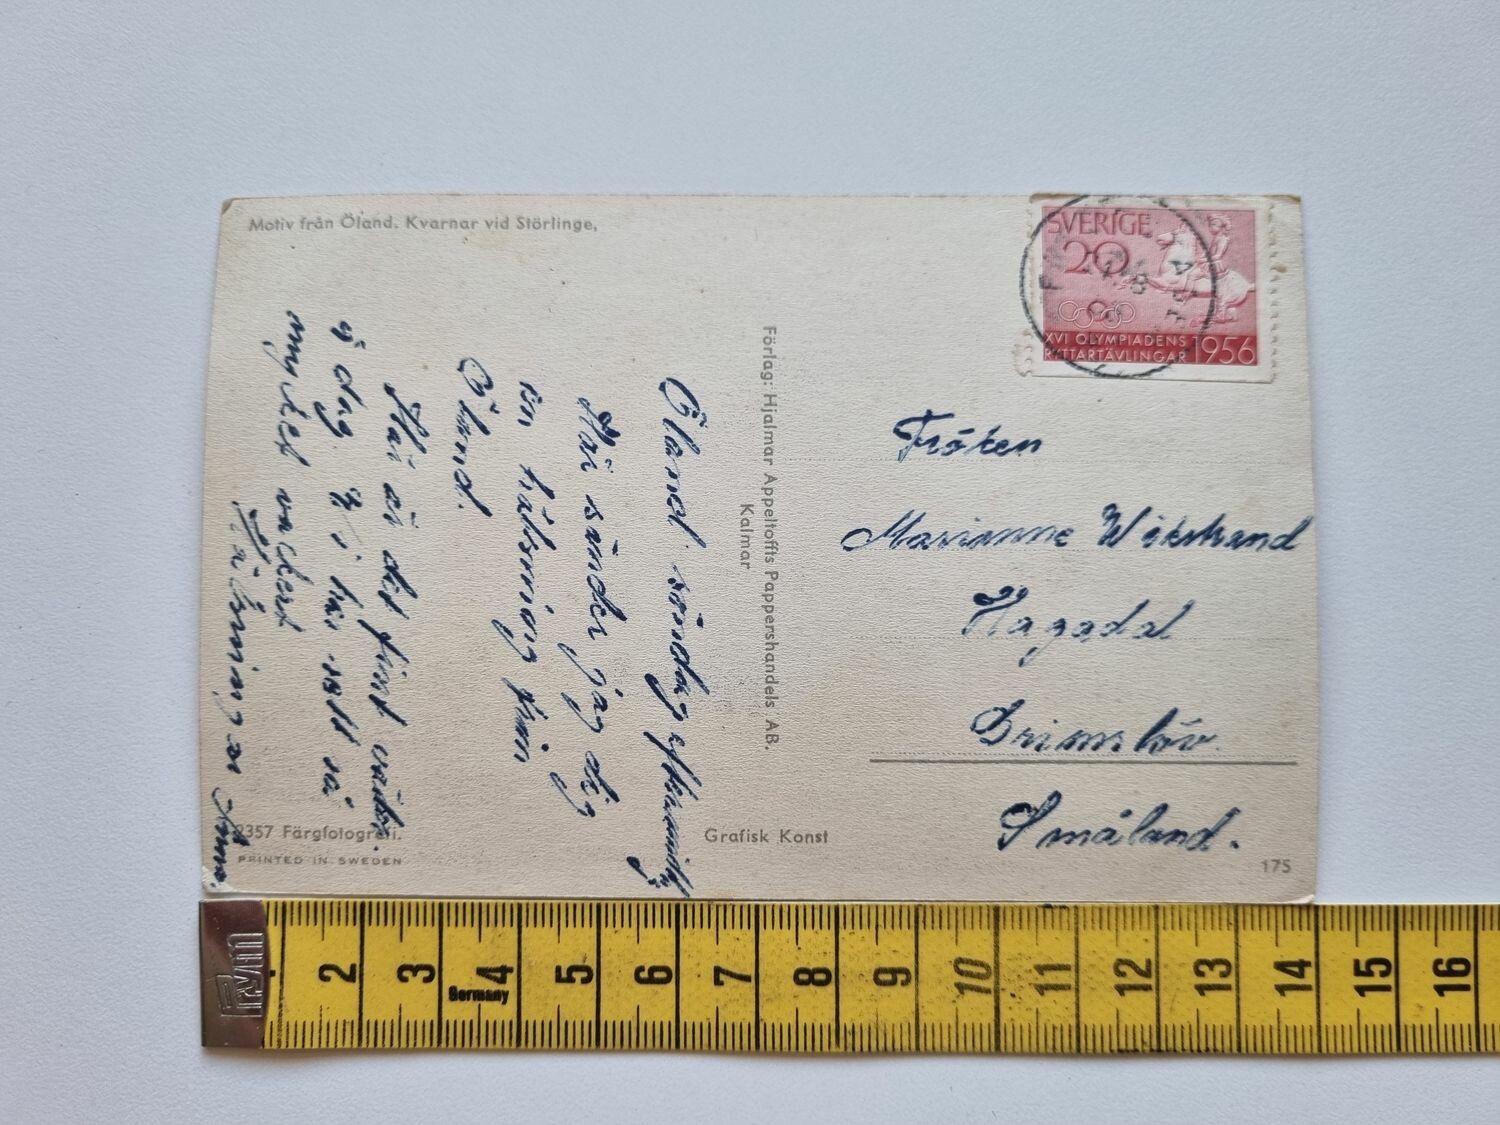 Motiv från Öland. Kvarnar vid Störlinge,
SVERIGE
20
XVI OLYMPIADENS
RYTTARTÄVLINGAR 1956
Öland söndag
Här sänder jag dig
en hälsning från
Öland.
Här är det fint väder
i dag Vi har sett så
mycket vackert
Hälsningar
Förlag: Hjalmar Appeltoffts Pappershandels AB.
Kalmar
Fröken
Marianne Wikstrand
Hagadal
Grimslöv
Småland.
2357 Färgfotografi.
PRINTED IN SWEDEN
Grafisk Konst
175
PRYM
2 3 4 5 6 7 8 9 10 11 12 13 14 15 16
Germany